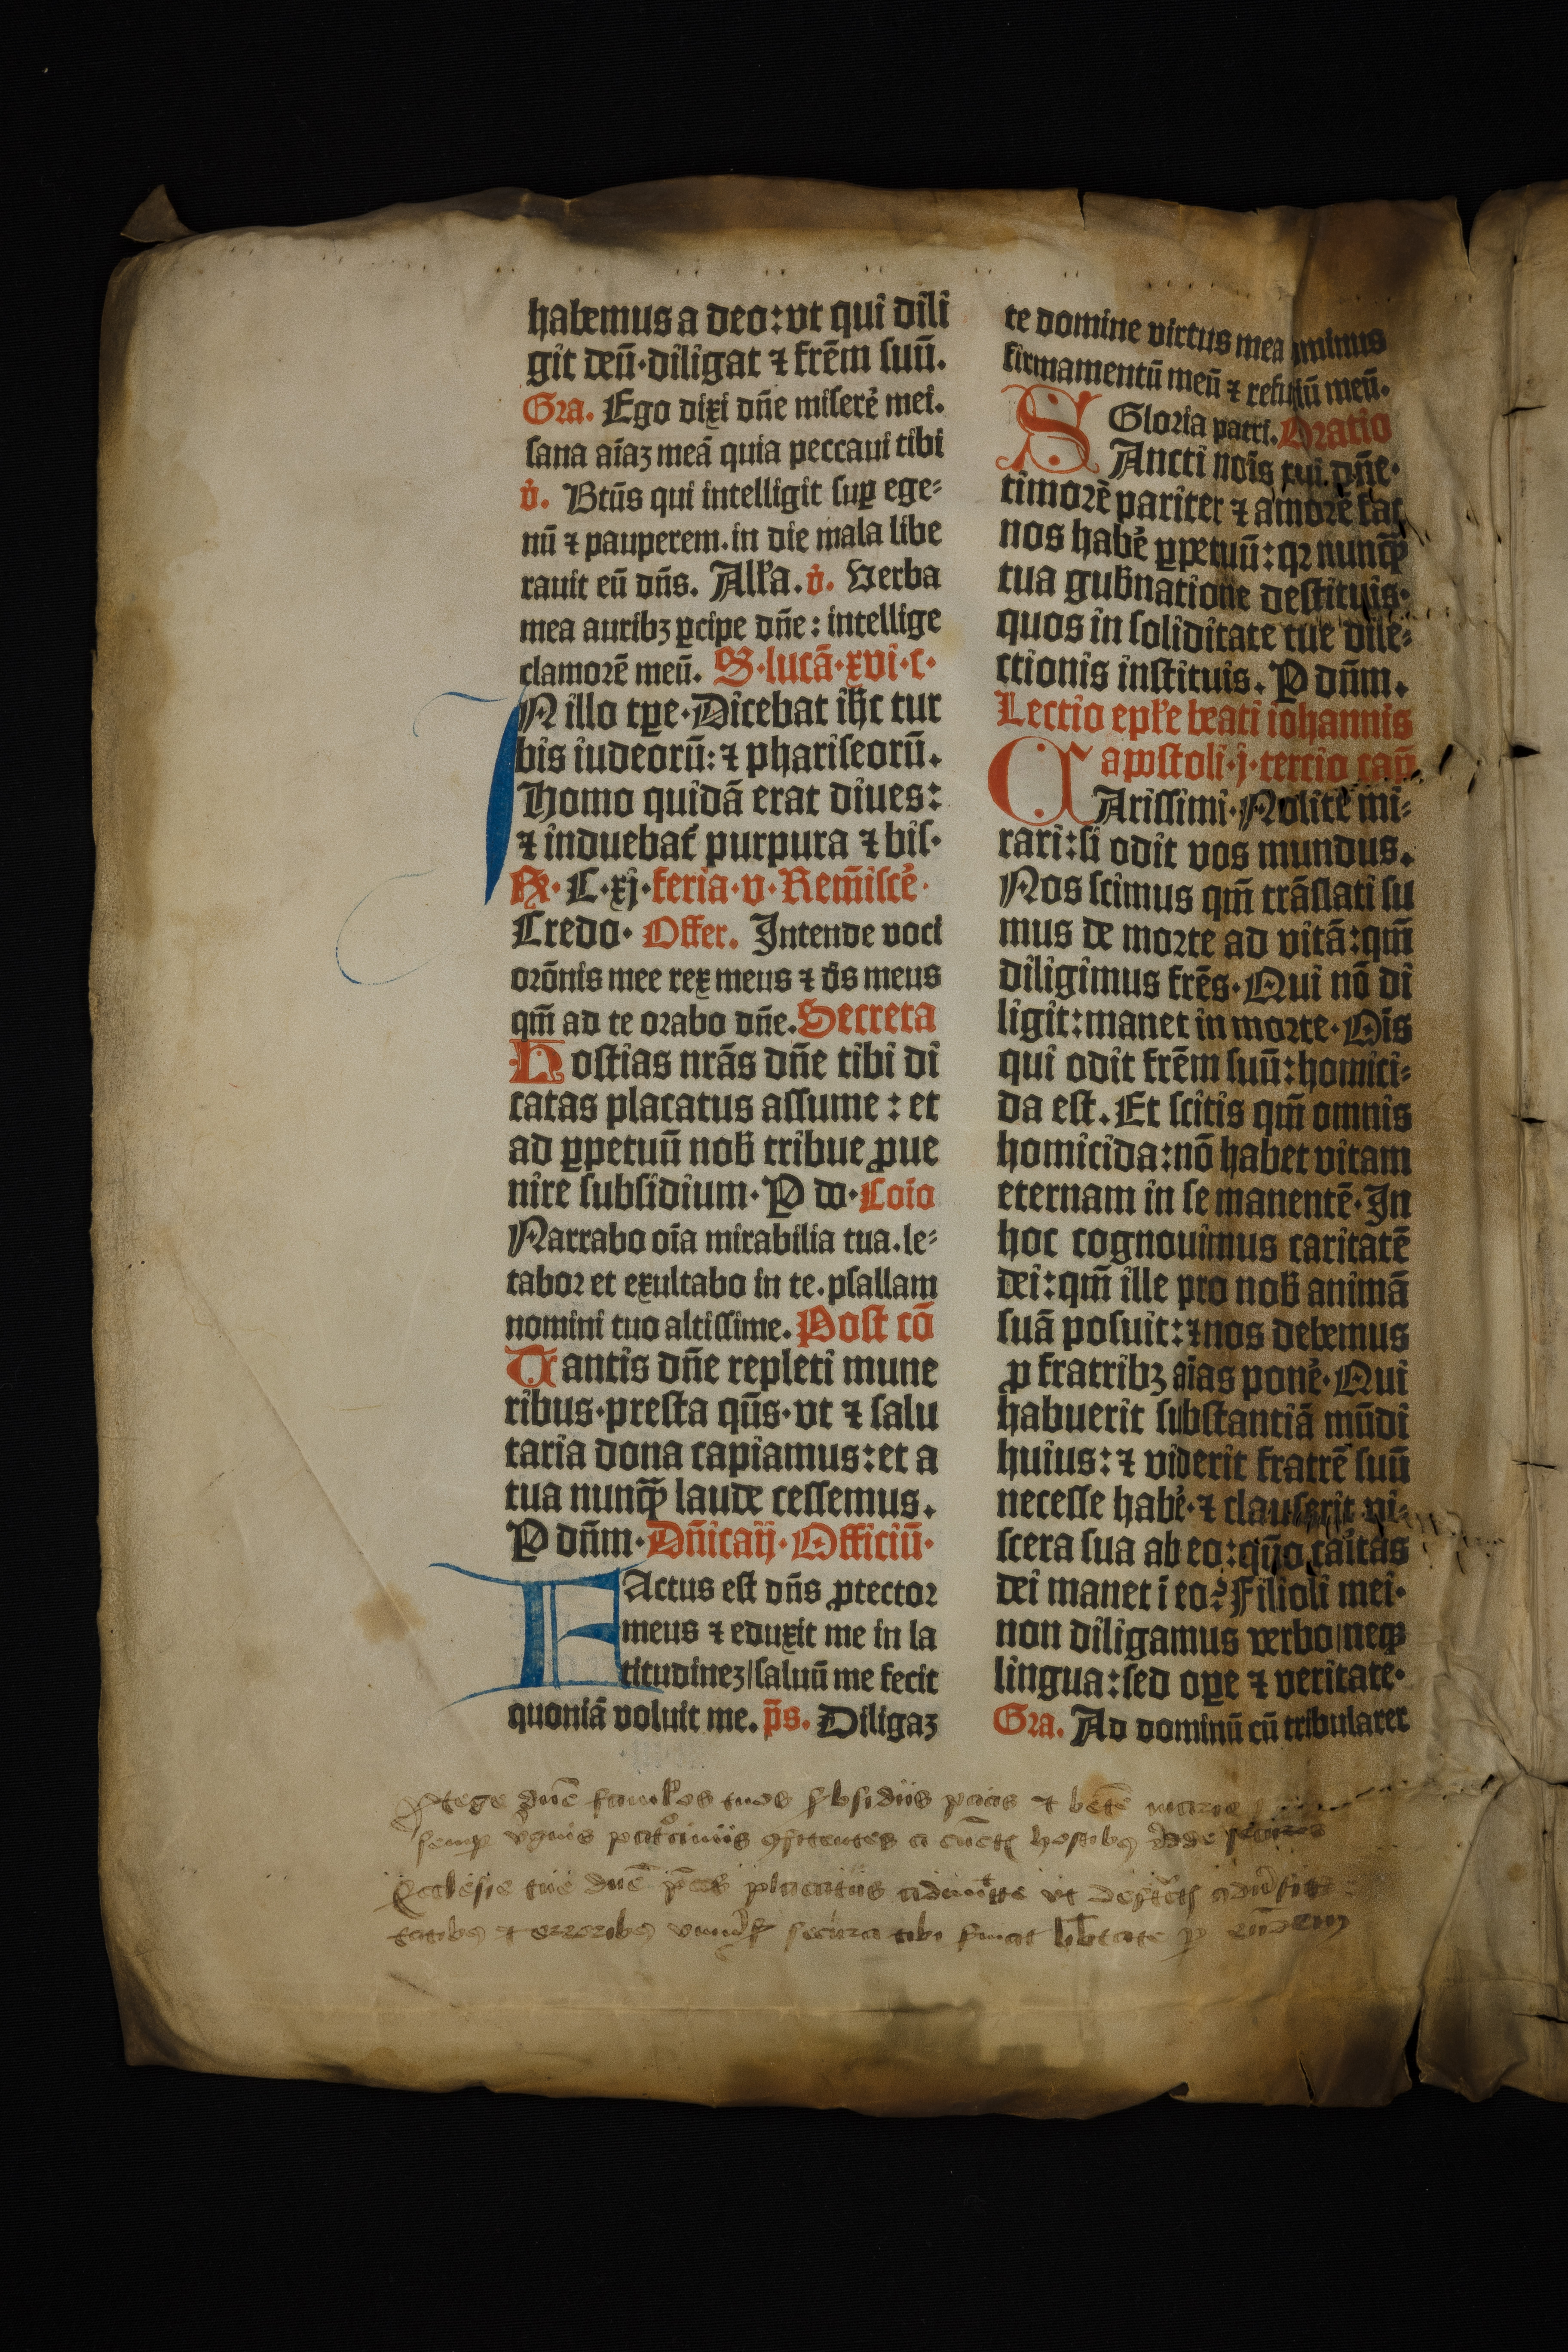 habemus a deo: vt qui dili
git deū· diligat ⁊ frēm suū.
Gra. Ego dixi dn̄e miserē mei.
sana aīaꝫ meā quia peccaui tibi
v̇. Btūs qui intelligit suꝑ ege⸗
nū ⁊ pauperem. in die mala libe
rauit eū dn̄s. Alľa. v̇. Verba
mea auribꝫ ꝑcipe dn̄e: intellige
clamorē meū. S· lucā· xvi· c·
IN illo tꝑe· Dicebat ihc̄ tur
bis iudeorū: ⁊ phariseorū.
Homo quidā erat diues:
⁊ induebat̄ purpura ⁊ bis·
Rͦ· C· xj· feria· v· Rem̄iscē·
Credo· Offer. Intende voci
orōnis mee rex meus ⁊ ds̄ meus
qm̄ ad te orabo dn̄e. Secreta
Hostias nrās dn̄e tibi di
catas placatus assume: et
ad ꝑpetuū nob̄ tribue ꝓue
nire subsidium· P do· Coīo
Narrabo oīa mirabilia tua. le⸗
tabor et exultabo in te. psallam
nomini tuo altissime. Post cō
Tantis dn̄e repleti mune
ribus· presta qs̄· vt ⁊ salu
taria dona capiamus: et a
tua nunqꝫ laude cessemus.
P dn̄m· Dn̄ica ij· Officiū·
FActus est dn̄s ꝓtector
meus ⁊ eduxit me in la
titudineꝫ/ saluū me fecit
quoniā voluit me. ps̄. Diligaꝫ
te domine virtus mea dominus
firmamentū meū ⁊ refugiū meū.
Gloria patri. Oratio
SAncti noīs tui. dn̄e·
timorē pariter ⁊ amorē fac
nos habē ꝑpetuū: qꝛ nunqꝫ
tua gub̄natione destituis·
quos in soliditate tue dile⸗
ctionis instituis. P dn̄m.
Lectio epľe beati iohannis
apostoli· j· tercio cap̄
CArissimi· Nolite mi⸗
rari: si odit vos mundus.
Nos scimus qm̄ trāslati su
mus de morte ad vitā: qm̄
diligimus frēs· Qui nō di
ligit: manet in morte· Oīs
qui odit frēm suū: homici⸗
da est. Et scitis qm̄ omnis
homicida: nō habet vitam
eternam in se manentē· In
hoc cognouimus caritatē
dei: qm̄ ille pro nob̄ animā
suā posuit: ⁊ nos debemus
ꝓ fratribꝫ aīas ponē· Qui
habuerit substantiā mūdi
huius: ⁊ viderit fratrē suū
necesse habē· ⁊ clauserit vi⸗
scera sua ab eo: qūo caītas
dei manet ī eo? Filioli mei·
non diligamus verbo/ neqꝫ
lingua: sed oꝑe ⁊ veritate·
Gra. Ad dominū cū tribularer
Ptege dn̄e famľos tuos sbsidiis pacis ⁊ bēte marie
semꝑ v̓ginis patͦciniis ꝯfidentes a cūctꝭ hostibꝫ redde securos
Ecclesie tue dn̄e p̄ces placatus admitte vt destructꝭ aduersi
tatibꝫ ⁊ erroribꝫ vniu̓sꝭ secura tibi seruiat lib̄tate ꝑ eundem